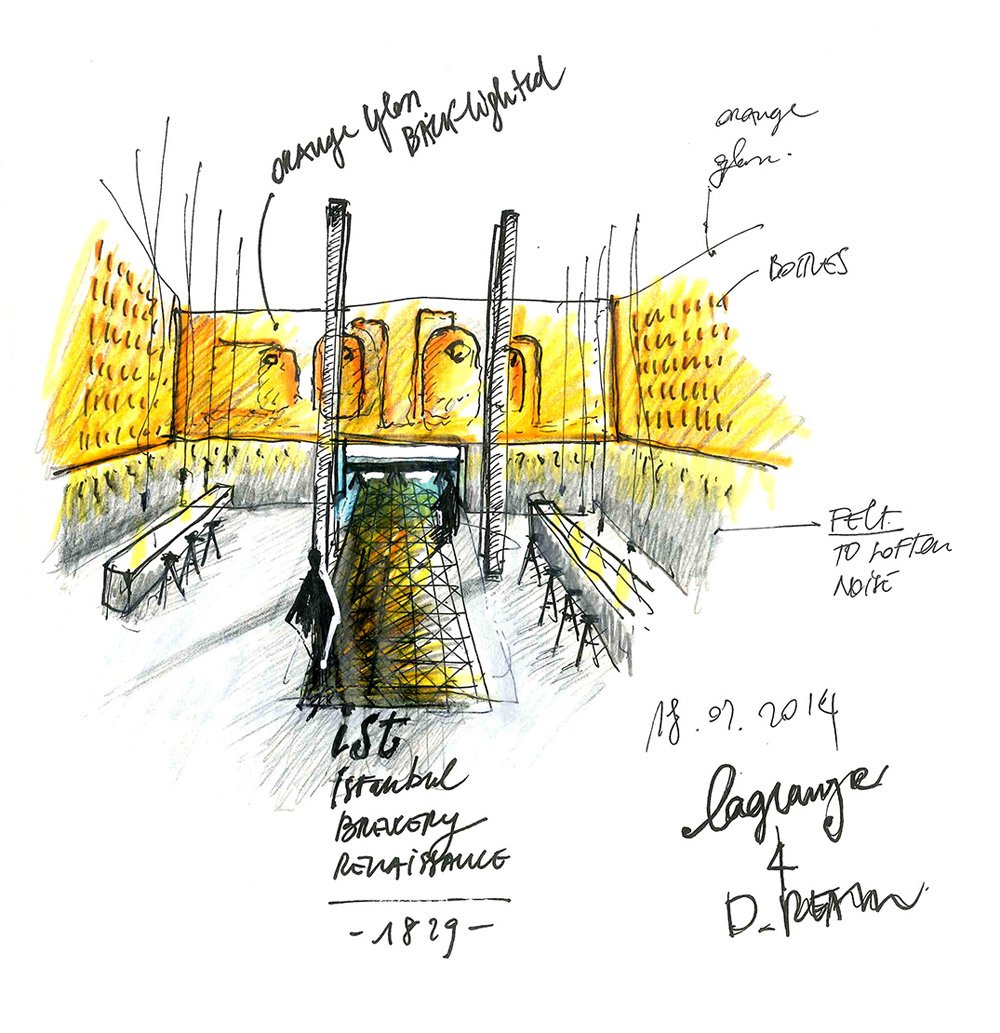 ORANGE glass
BACK-lighted
ORANGE
glass.
BOTTLES
FELT
TO SOFTEN
NOISE
ist
istanbul
BREWERY
RENAISSANCE
-1829-
2014
lagrange
4
D_